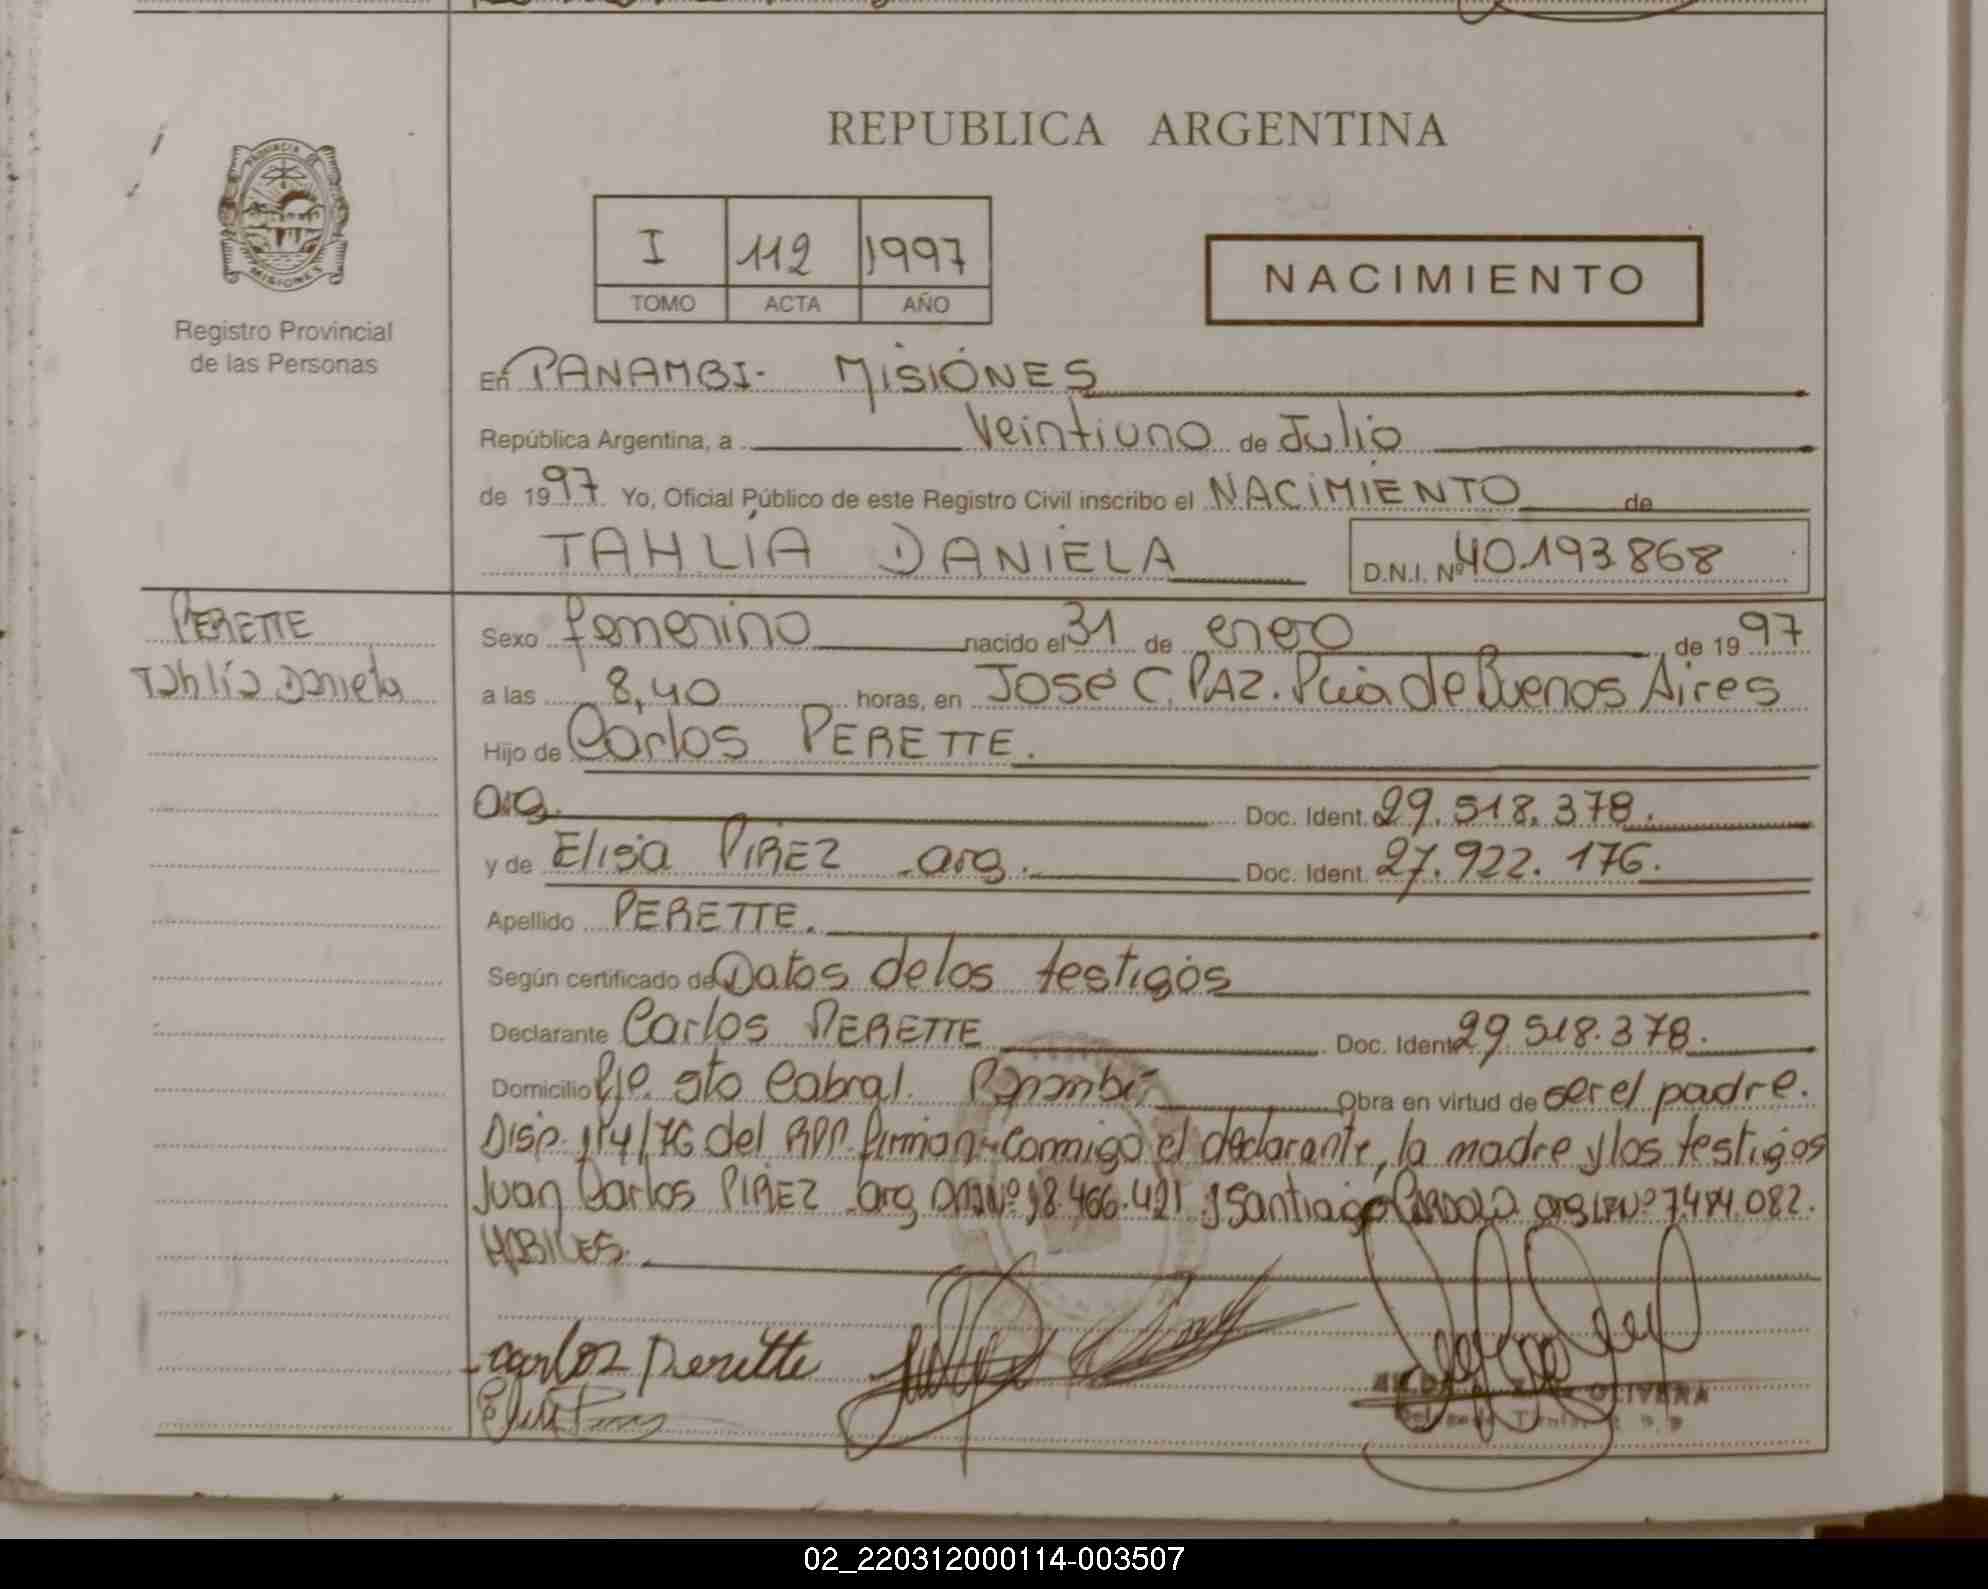 REPUBLICA ARGENTINA
PROVINCIA DE
MISIONES
Registro Provincial
de las Personas
I 112 1997
TOMO ACTA AÑO
NACIMIENTO
En PANAMBI- MISIONES
República Argentina, a Veintiuno de Julio
de 1997 Yo, Oficial Público de este Registro Civil inscribo el NACIMIENTO de
TAHLIA DANIELA D.N.I. Nº 40.193.868
PERETTE
Tahlía Daniela
Sexo femenino nacido el 31 de enero de 1997
a las 8,40 horas, en José C. PAZ. Pcia de Buenos Aires
Hijo de Carlos PERETTE.
arg. Doc. Ident. 29.518.378.
y de Elisa PIREZ arg. Doc. Ident. 27.922.176.
Apellido PERETTE.
Según certificado de Datos de los testigos
Declarante Carlos PERETTE Doc. Ident 29.518.378.
Domicilio Pje. sto Cabral. Panambí Obra en virtud de ser el padre.
Disp. /76 del RPP. firman conmigo el declarante, la madre y los testigos
Juan Carlos PIREZ arg DNI Nº 18.466.421 y Santiago arg Nº 7.484.082.
HABILES.
Carlos Perette
OLIVERA
02_220312000114-003507